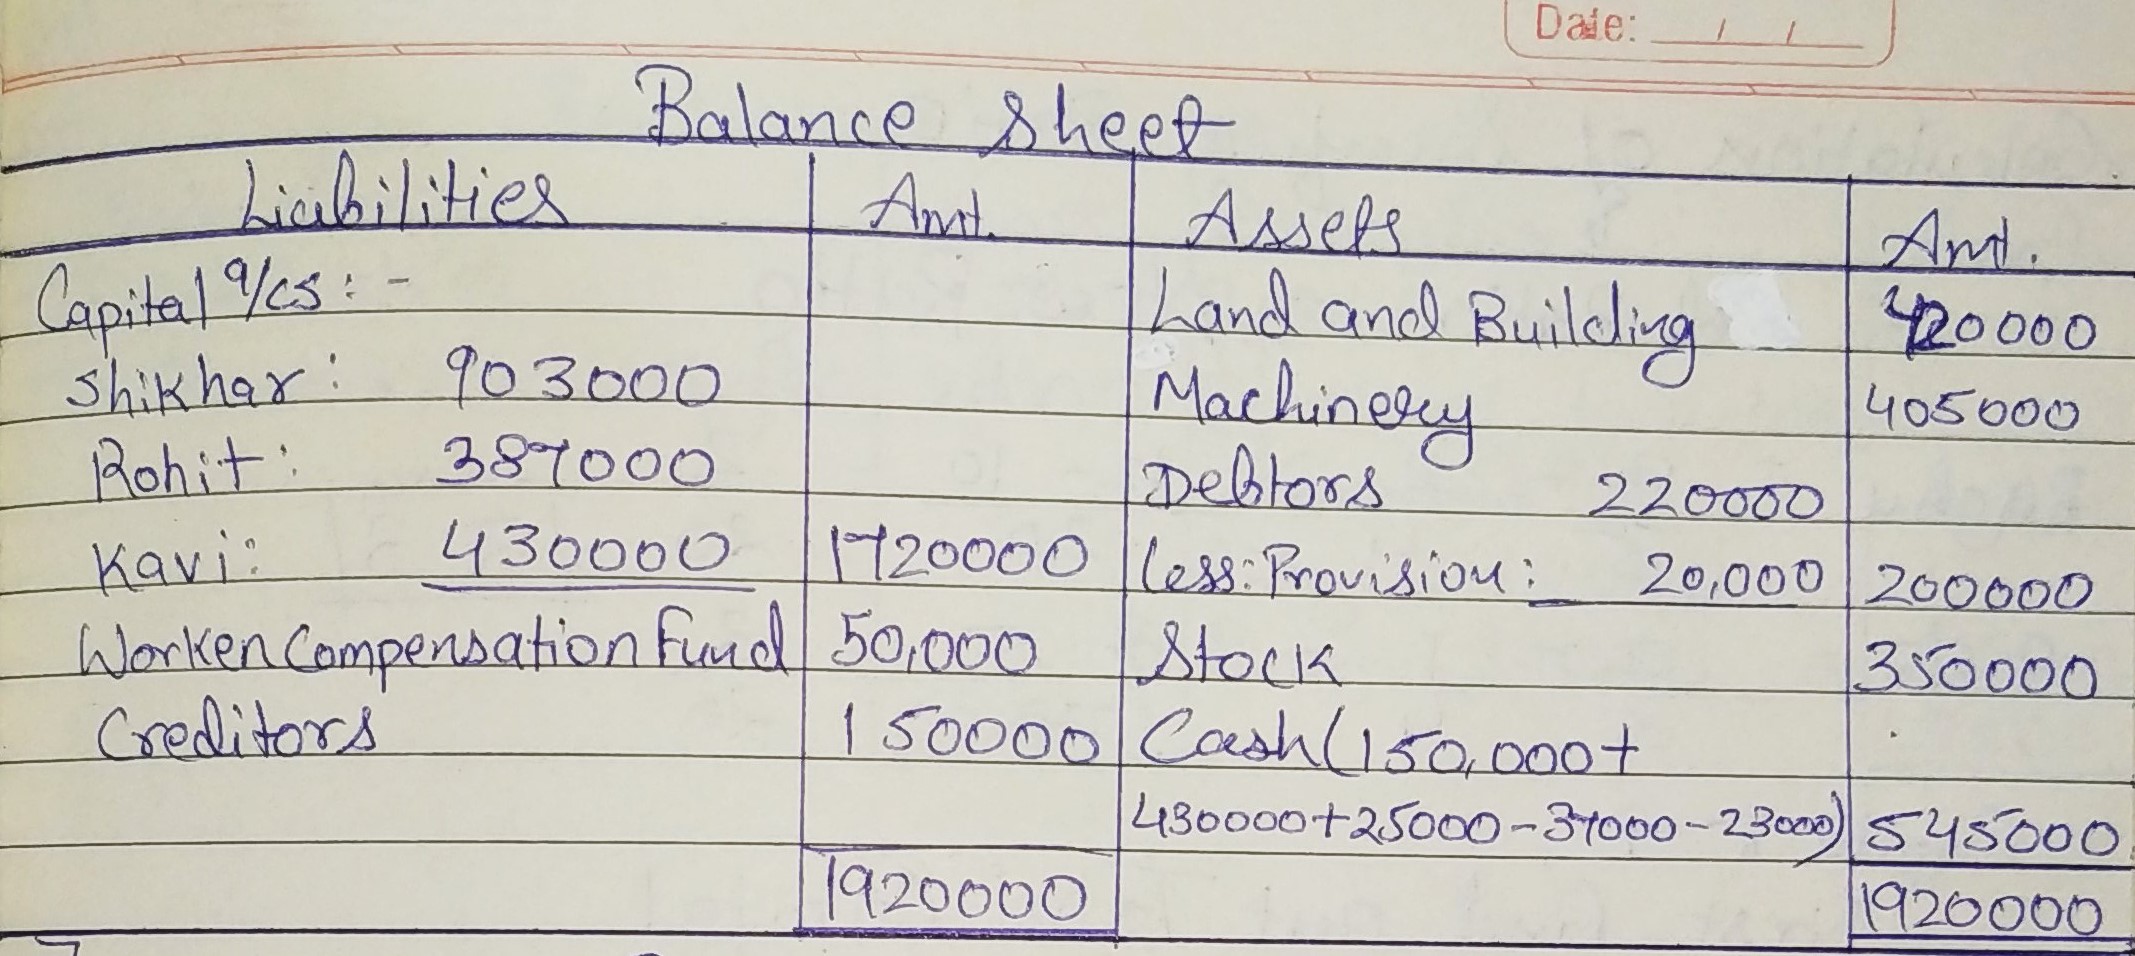 Date: / /
Balance Sheet
Liabilities Amt. Assets Amt.
Capital a/cs:- Land and Building 420000
Shikhar: 903000 Machinery 405000
Rohit: 387000 Debtors 220000
Kavi: 430000 1720000 Less: Provision: 20,000 200000
Worken Compensation Fund 50,000 Stock 350000
Creditors 150000 Cash (150,000+
430000+25000-37000-23000) 545000
1920000 1920000